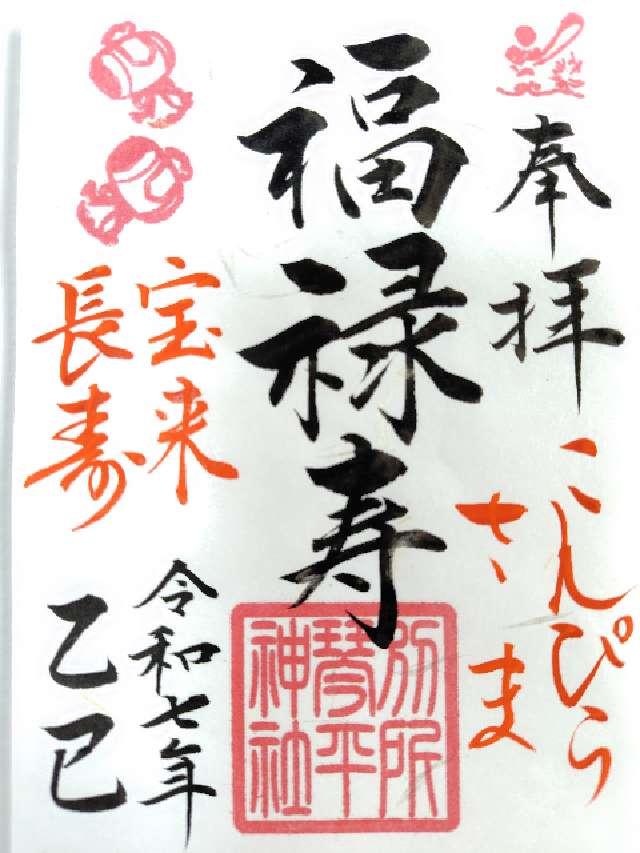 奉拝
こんぴら
さま
福禄寿
別所
琴平
神社
宝来
長寿
令和七年
乙巳